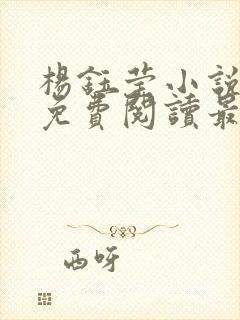 楊鈺莹小說
免費閱讀最
西呀